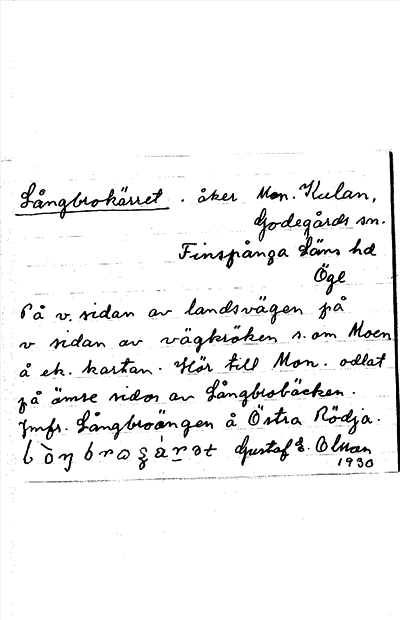 Långbrokärret. åker Mon. Kulan,
Godegårds sn.
Finspånga läns hd
Ögl
På v. sidan av landsvägen på
v sidan av vägkröken s. om Moen
å ek. kartan. Hör till Mon. odlat
på ömse sidor av Långbrobäcken.
Jmfr. Långbroängen å Östra Rödja.
Gustaf E. Olsson
1930